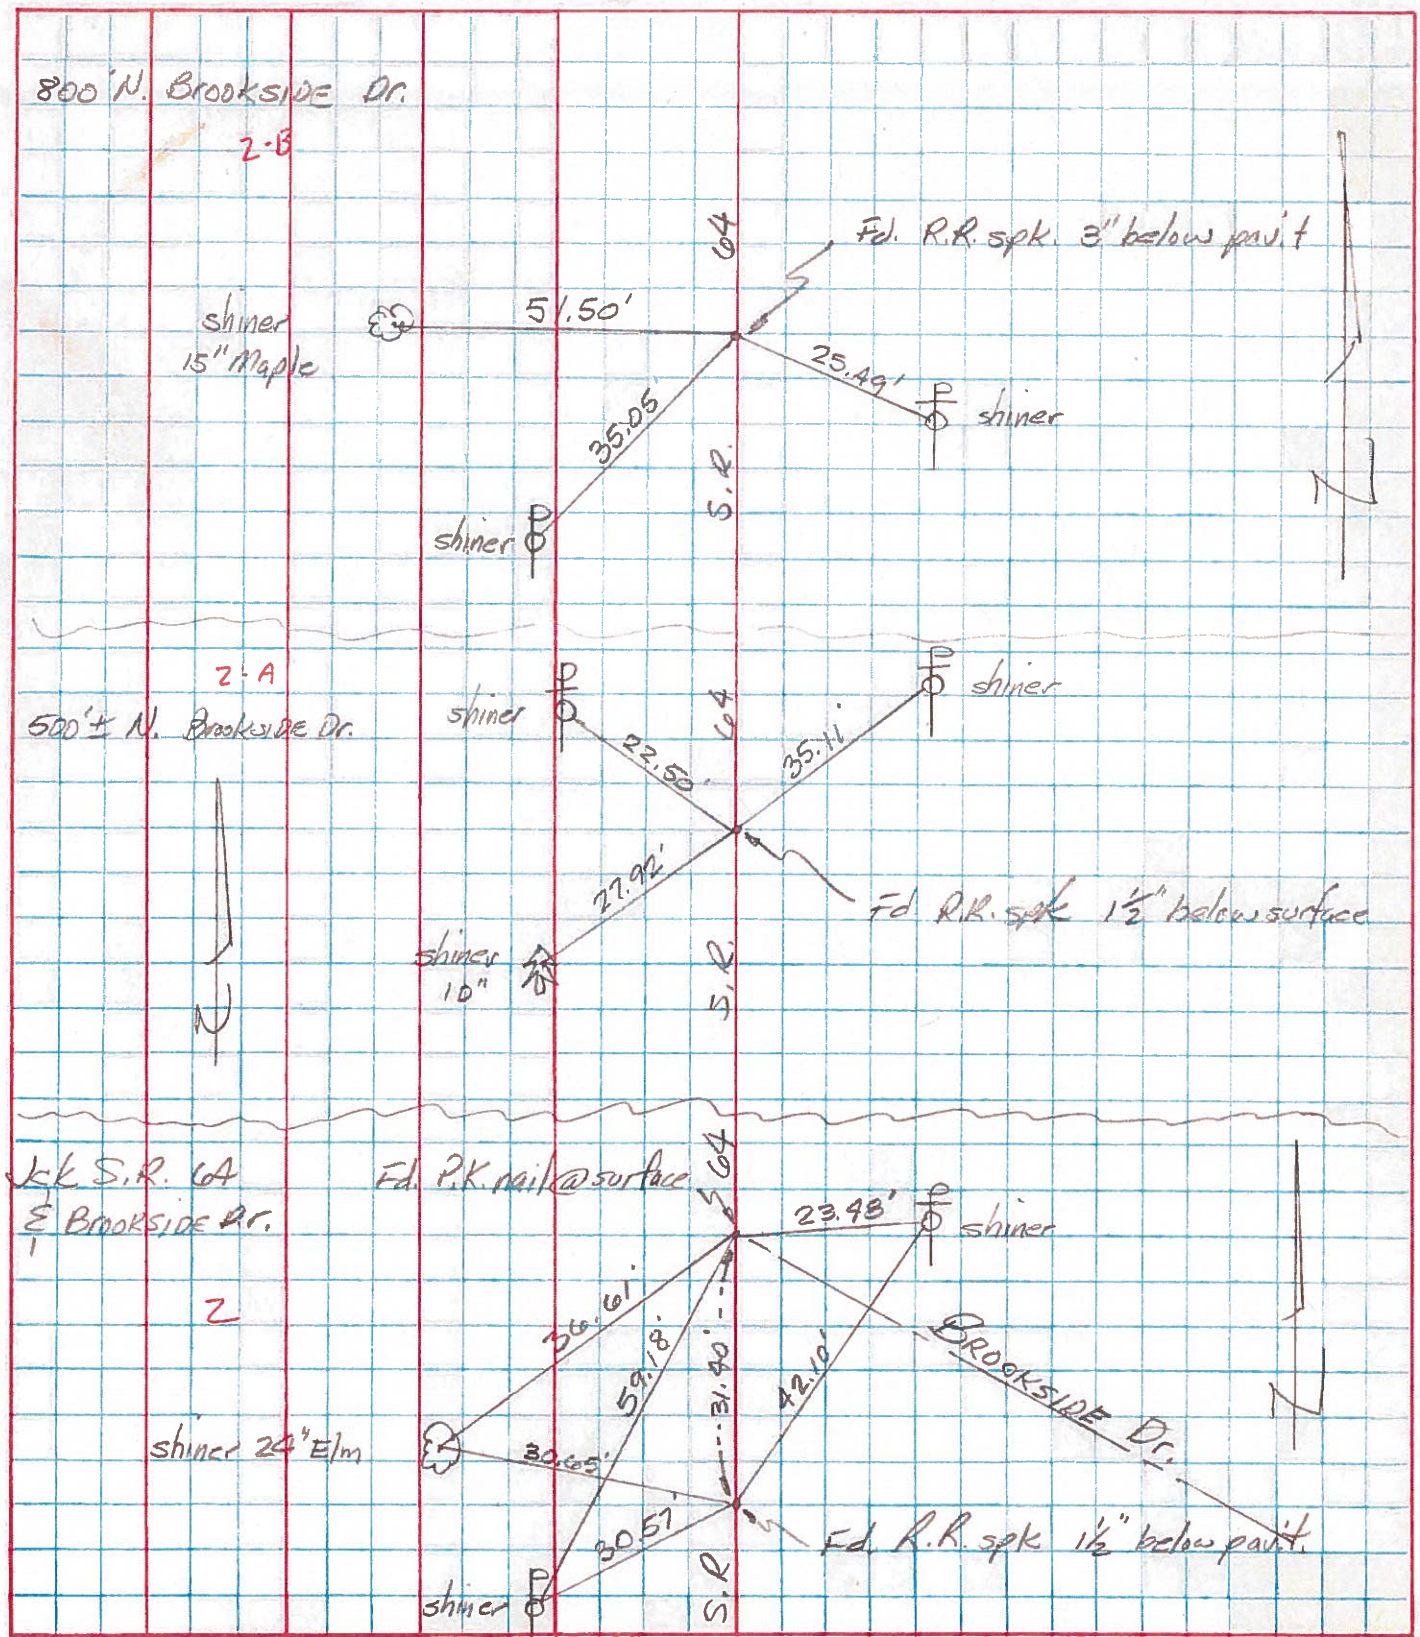 800' N. BROOKSIDE Dr.
2-B
64
Fd. R.R. spk. 3" below pav't
shiner
15" Maple
51.50'
25.49'
shiner
35.05
S.R.
shiner
N
2-A
500'± N. BROOKSIDE Dr.
shiner
64
shiner
22.50'
35.11'
27.92'
Fd R.R. spk 1½" below surface
shiner
10"
S.R.
N
S.R. 64
& BROOKSIDE Dr.
2
Fd. P.K. nail @ surface
64
23.48'
shiner
36.61'
59.18'
31.40'
42.10'
BROOKSIDE Dr.
shiner 24" Elm
30.65'
30.57'
Fd. R.R. spk 1½" below pav't.
shiner
S.R
N